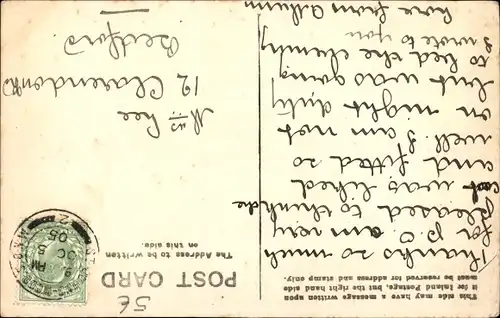 This side may have a message written upon
it for Inland Postage, but the right hand side
must be reserved for address and stamp only.
Thanks so much
for p.c. am very
pleased to think
cat was liked
and fitted so
well. I am not
on night duty
but was going
to bed the
I wrote to you
here from
POST CARD
The Address to be written
on this side.
56
OC 5
05
Mrs Lee
12 Clarendon Rd
Bedford